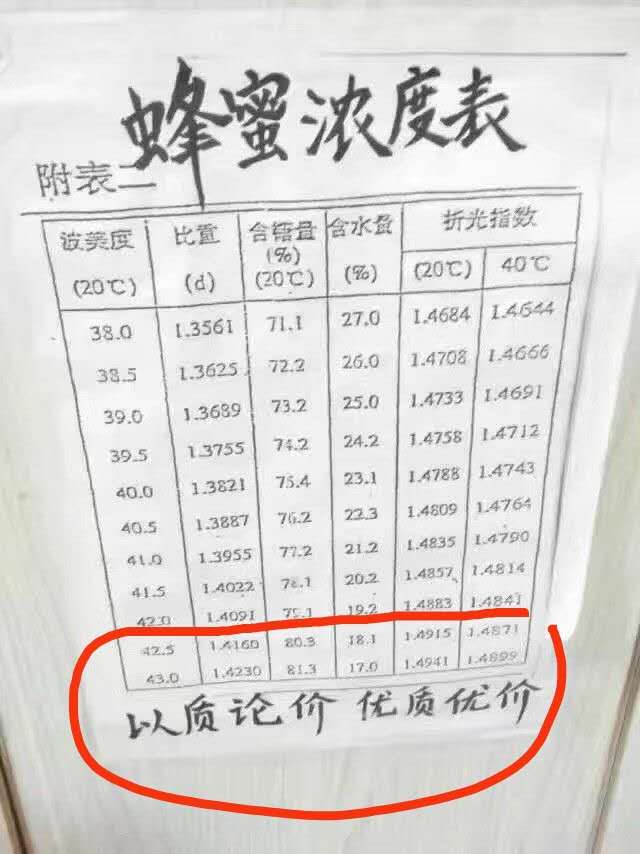 蜂蜜浓度表
附表二
波美度 (20℃) 比重 (d) 含糖量 (%) (20℃) 含水量 (%) 折光指数 (20℃) 40℃
38.0 1.3561 71.1 27.0 1.4684 1.4644
38.5 1.3625 72.2 26.0 1.4708 1.4666
39.0 1.3689 73.2 25.0 1.4733 1.4691
39.5 1.3755 74.2 24.2 1.4758 1.4712
40.0 1.3821 75.4 23.1 1.4788 1.4743
40.5 1.3887 76.2 22.3 1.4809 1.4764
41.0 1.3955 77.2 21.2 1.4835 1.4790
41.5 1.4022 78.1 20.2 1.4857 1.4814
42.0 1.4091 79.1 19.2 1.4883 1.4841
42.5 1.4160 80.3 18.1 1.4915 1.4871
43.0 1.4230 81.3 17.0 1.4941 1.4899
以质论价 优质优价